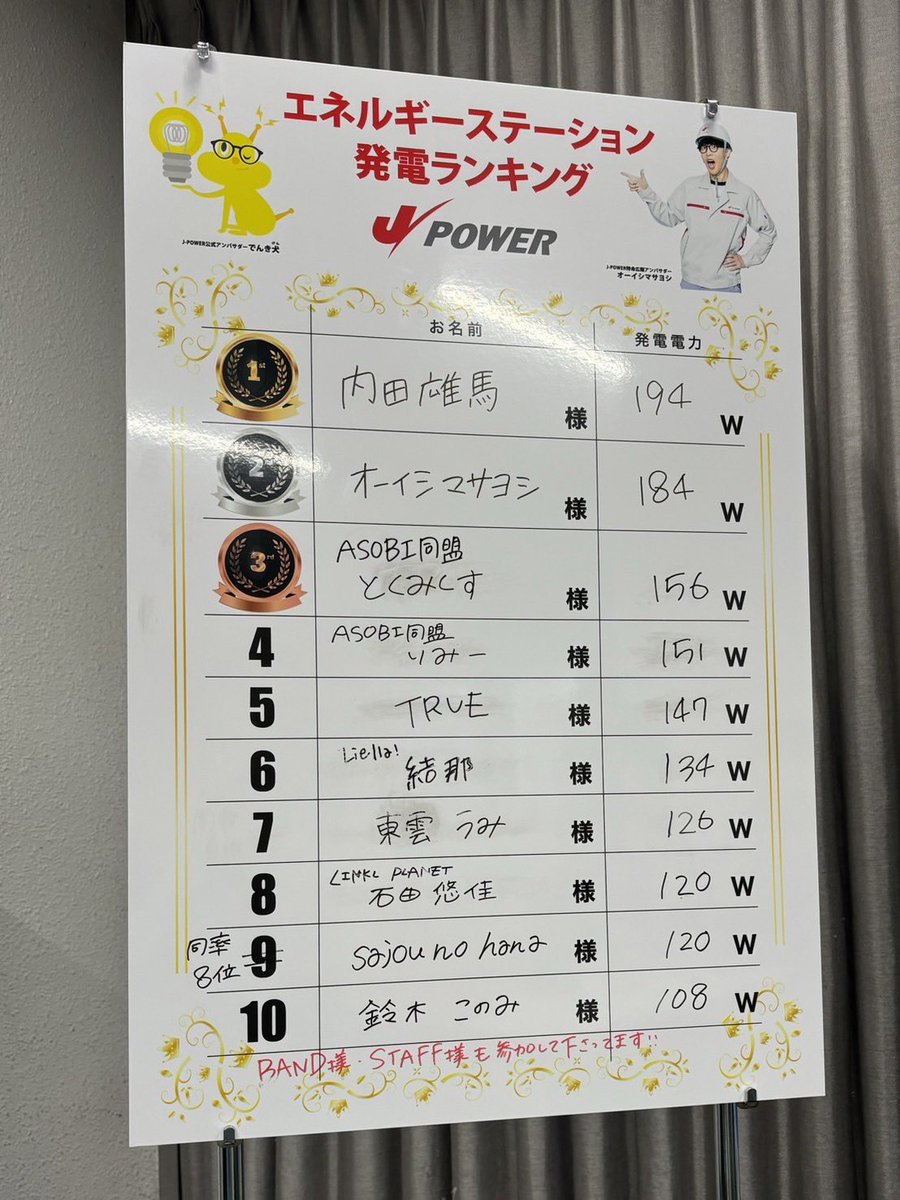 エネルギーステーション
発電ランキング
J POWER
J-POWER公式アンバサダー でんき犬
けん
J-POWER特命広報アンバサダー
オーイシマサヨシ
お名前 発電電力
1st 内田雄馬 様 194 W
2nd オーイシマサヨシ 様 184 W
3rd ASOBI同盟
とくみくす 様 156 W
4 ASOBI同盟
りみー 様 151 W
5 TRUE 様 147 W
6 Liella!
結那 様 134 W
7 東雲うみ 様 126 W
8 LINKL PLANET
石田 悠佳 様 120 W
同率
8位 9 sajou no hana 様 120 W
10 鈴木 このみ 様 108 W
BAND様・STAFF様も参加して下さってます!!